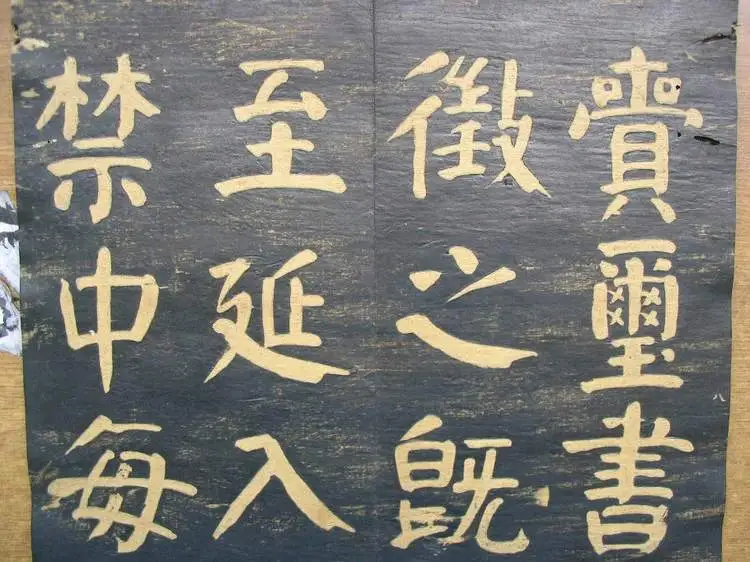 賷璽書
徵之既
至延入
禁中每
八